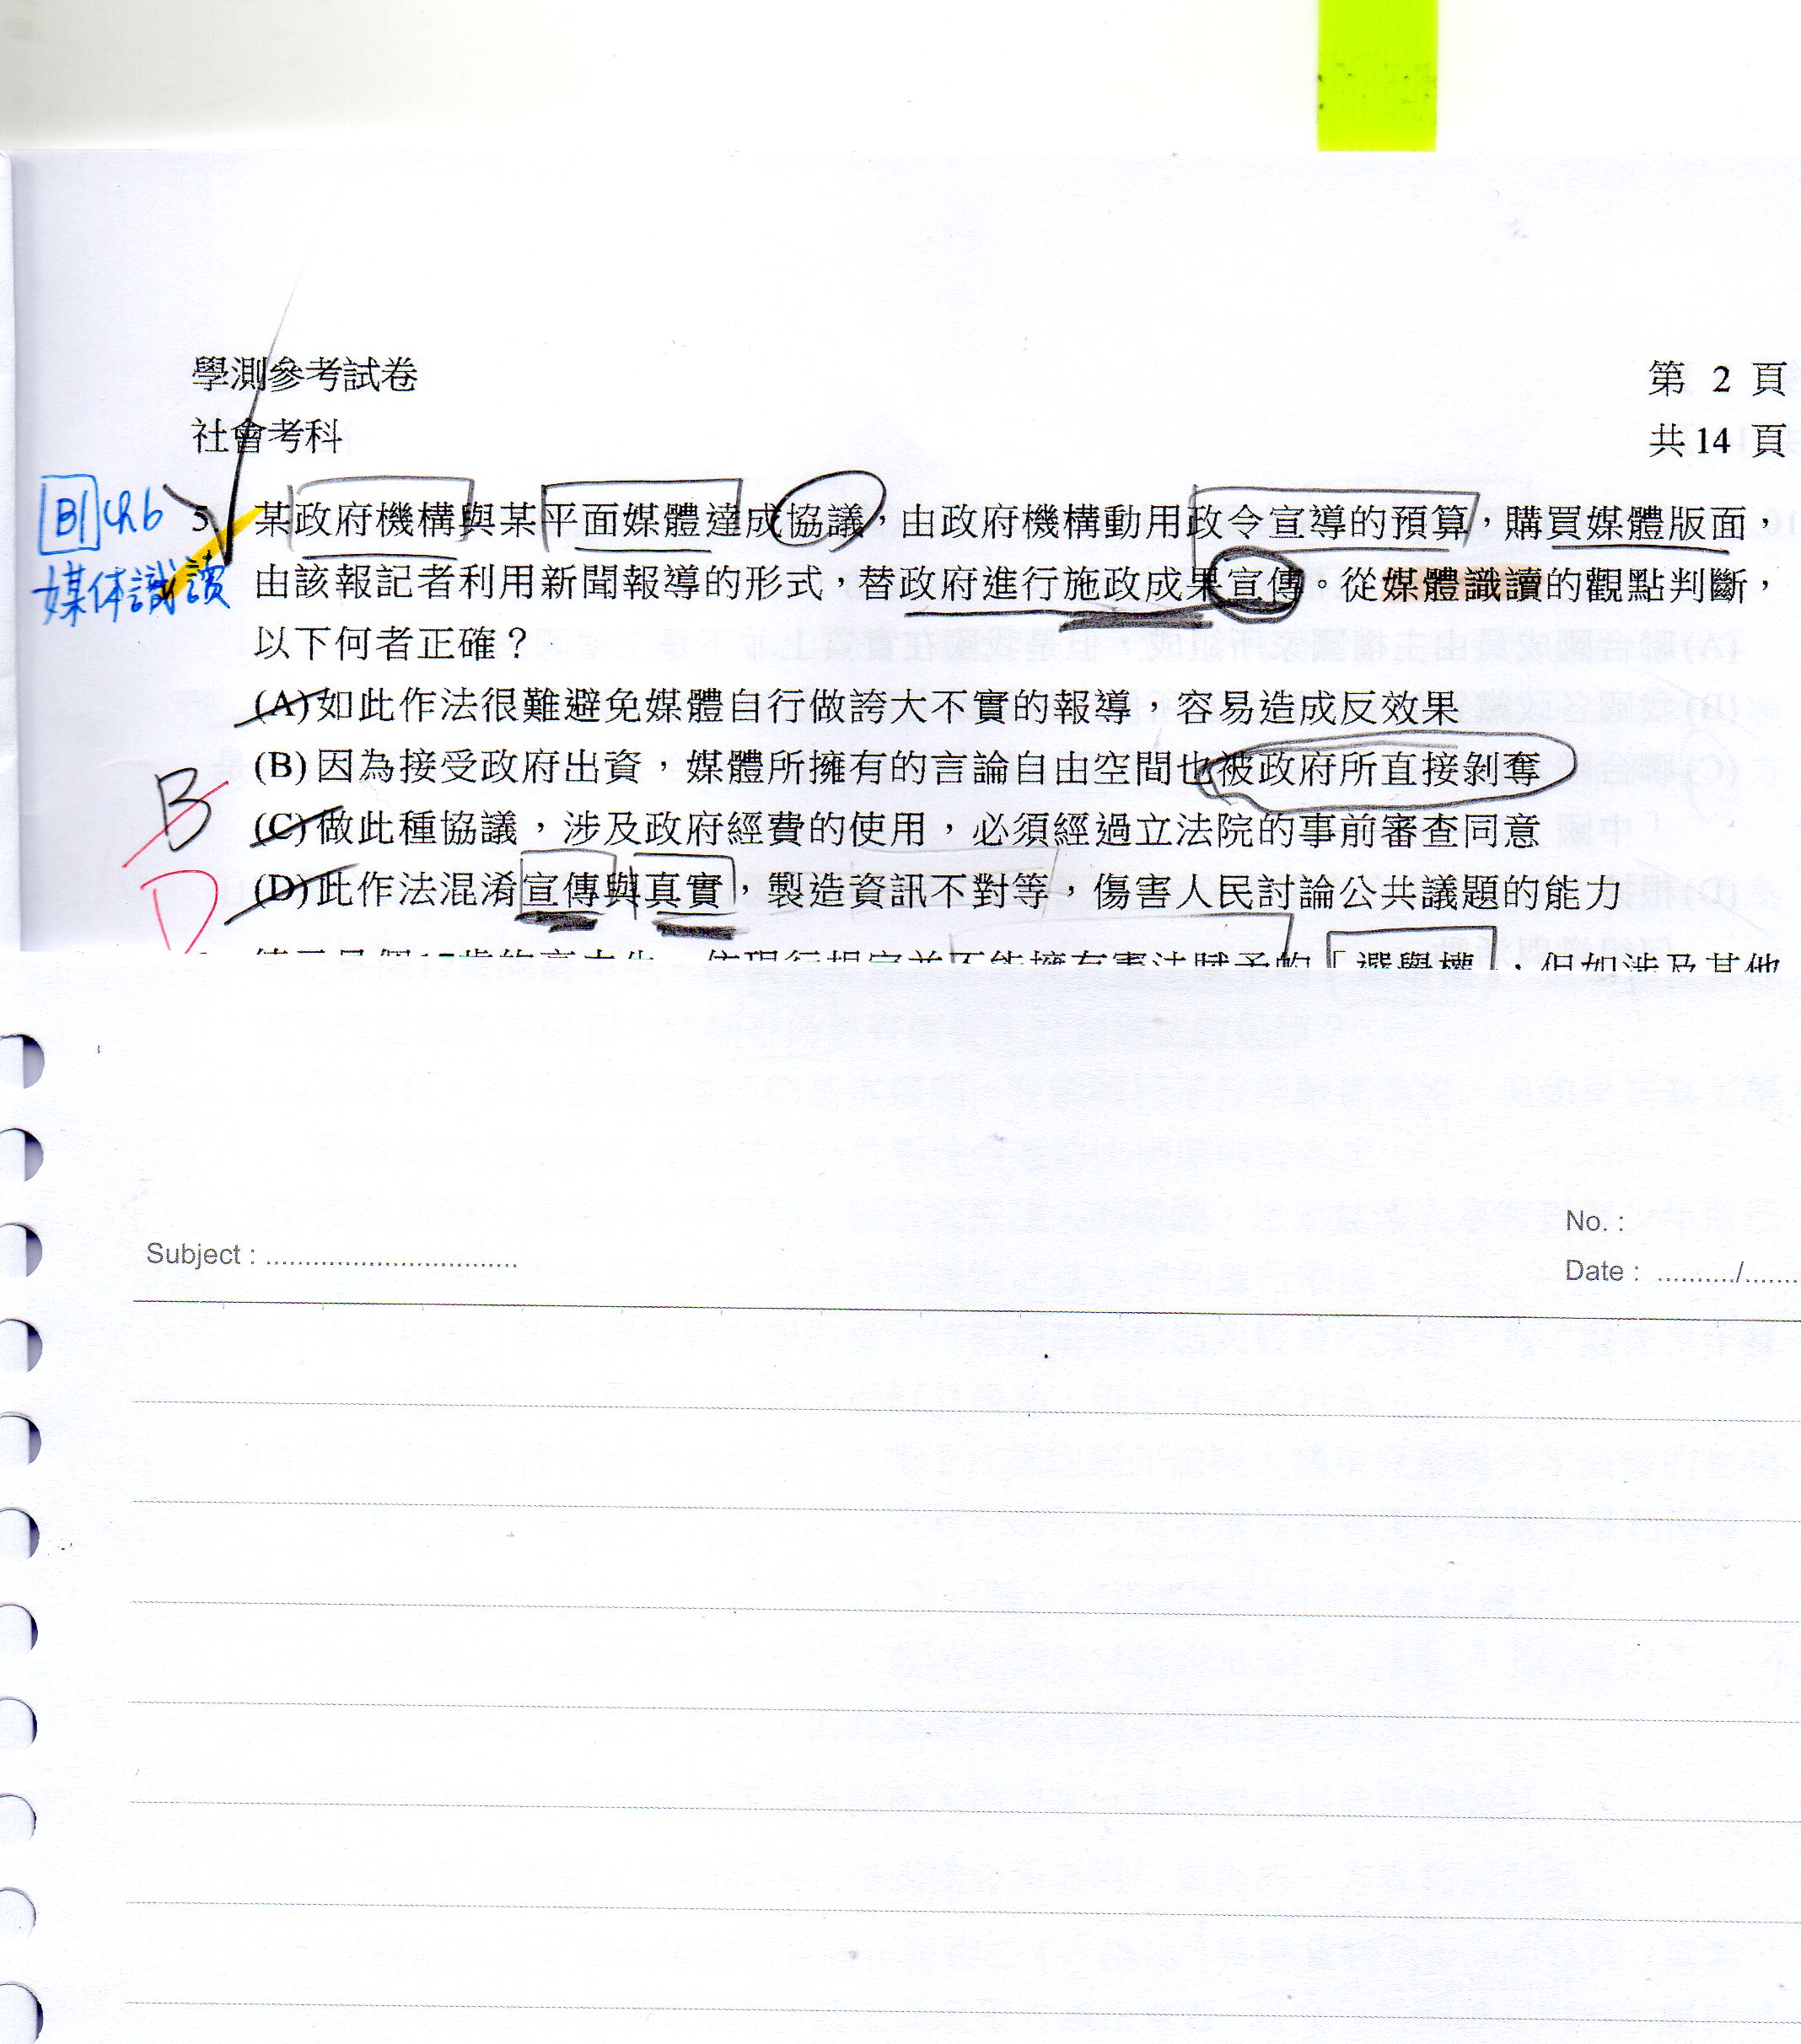 學測參考試卷
第 2 頁
社會考科
共 14 頁
B1 ch6
媒体識讀
5. 某政府機構與某平面媒體達成協議，由政府機構動用政令宣導的預算，購買媒體版面，
由該報記者利用新聞報導的形式，替政府進行施政成果宣傳。從媒體識讀的觀點判斷，
以下何者正確？
(A)如此作法很難避免媒體自行做誇大不實的報導，容易造成反效果
(B)因為接受政府出資，媒體所擁有的言論自由空間也被政府所直接剝奪
B
(C)做此種協議，涉及政府經費的使用，必須經過立法院的事前審查同意
D
(D)此作法混淆宣傳與真實，製造資訊不對等，傷害人民討論公共議題的能力
「選舉權」，但如涉及其他
No. :
Subject : ................................
Date : ........../.......